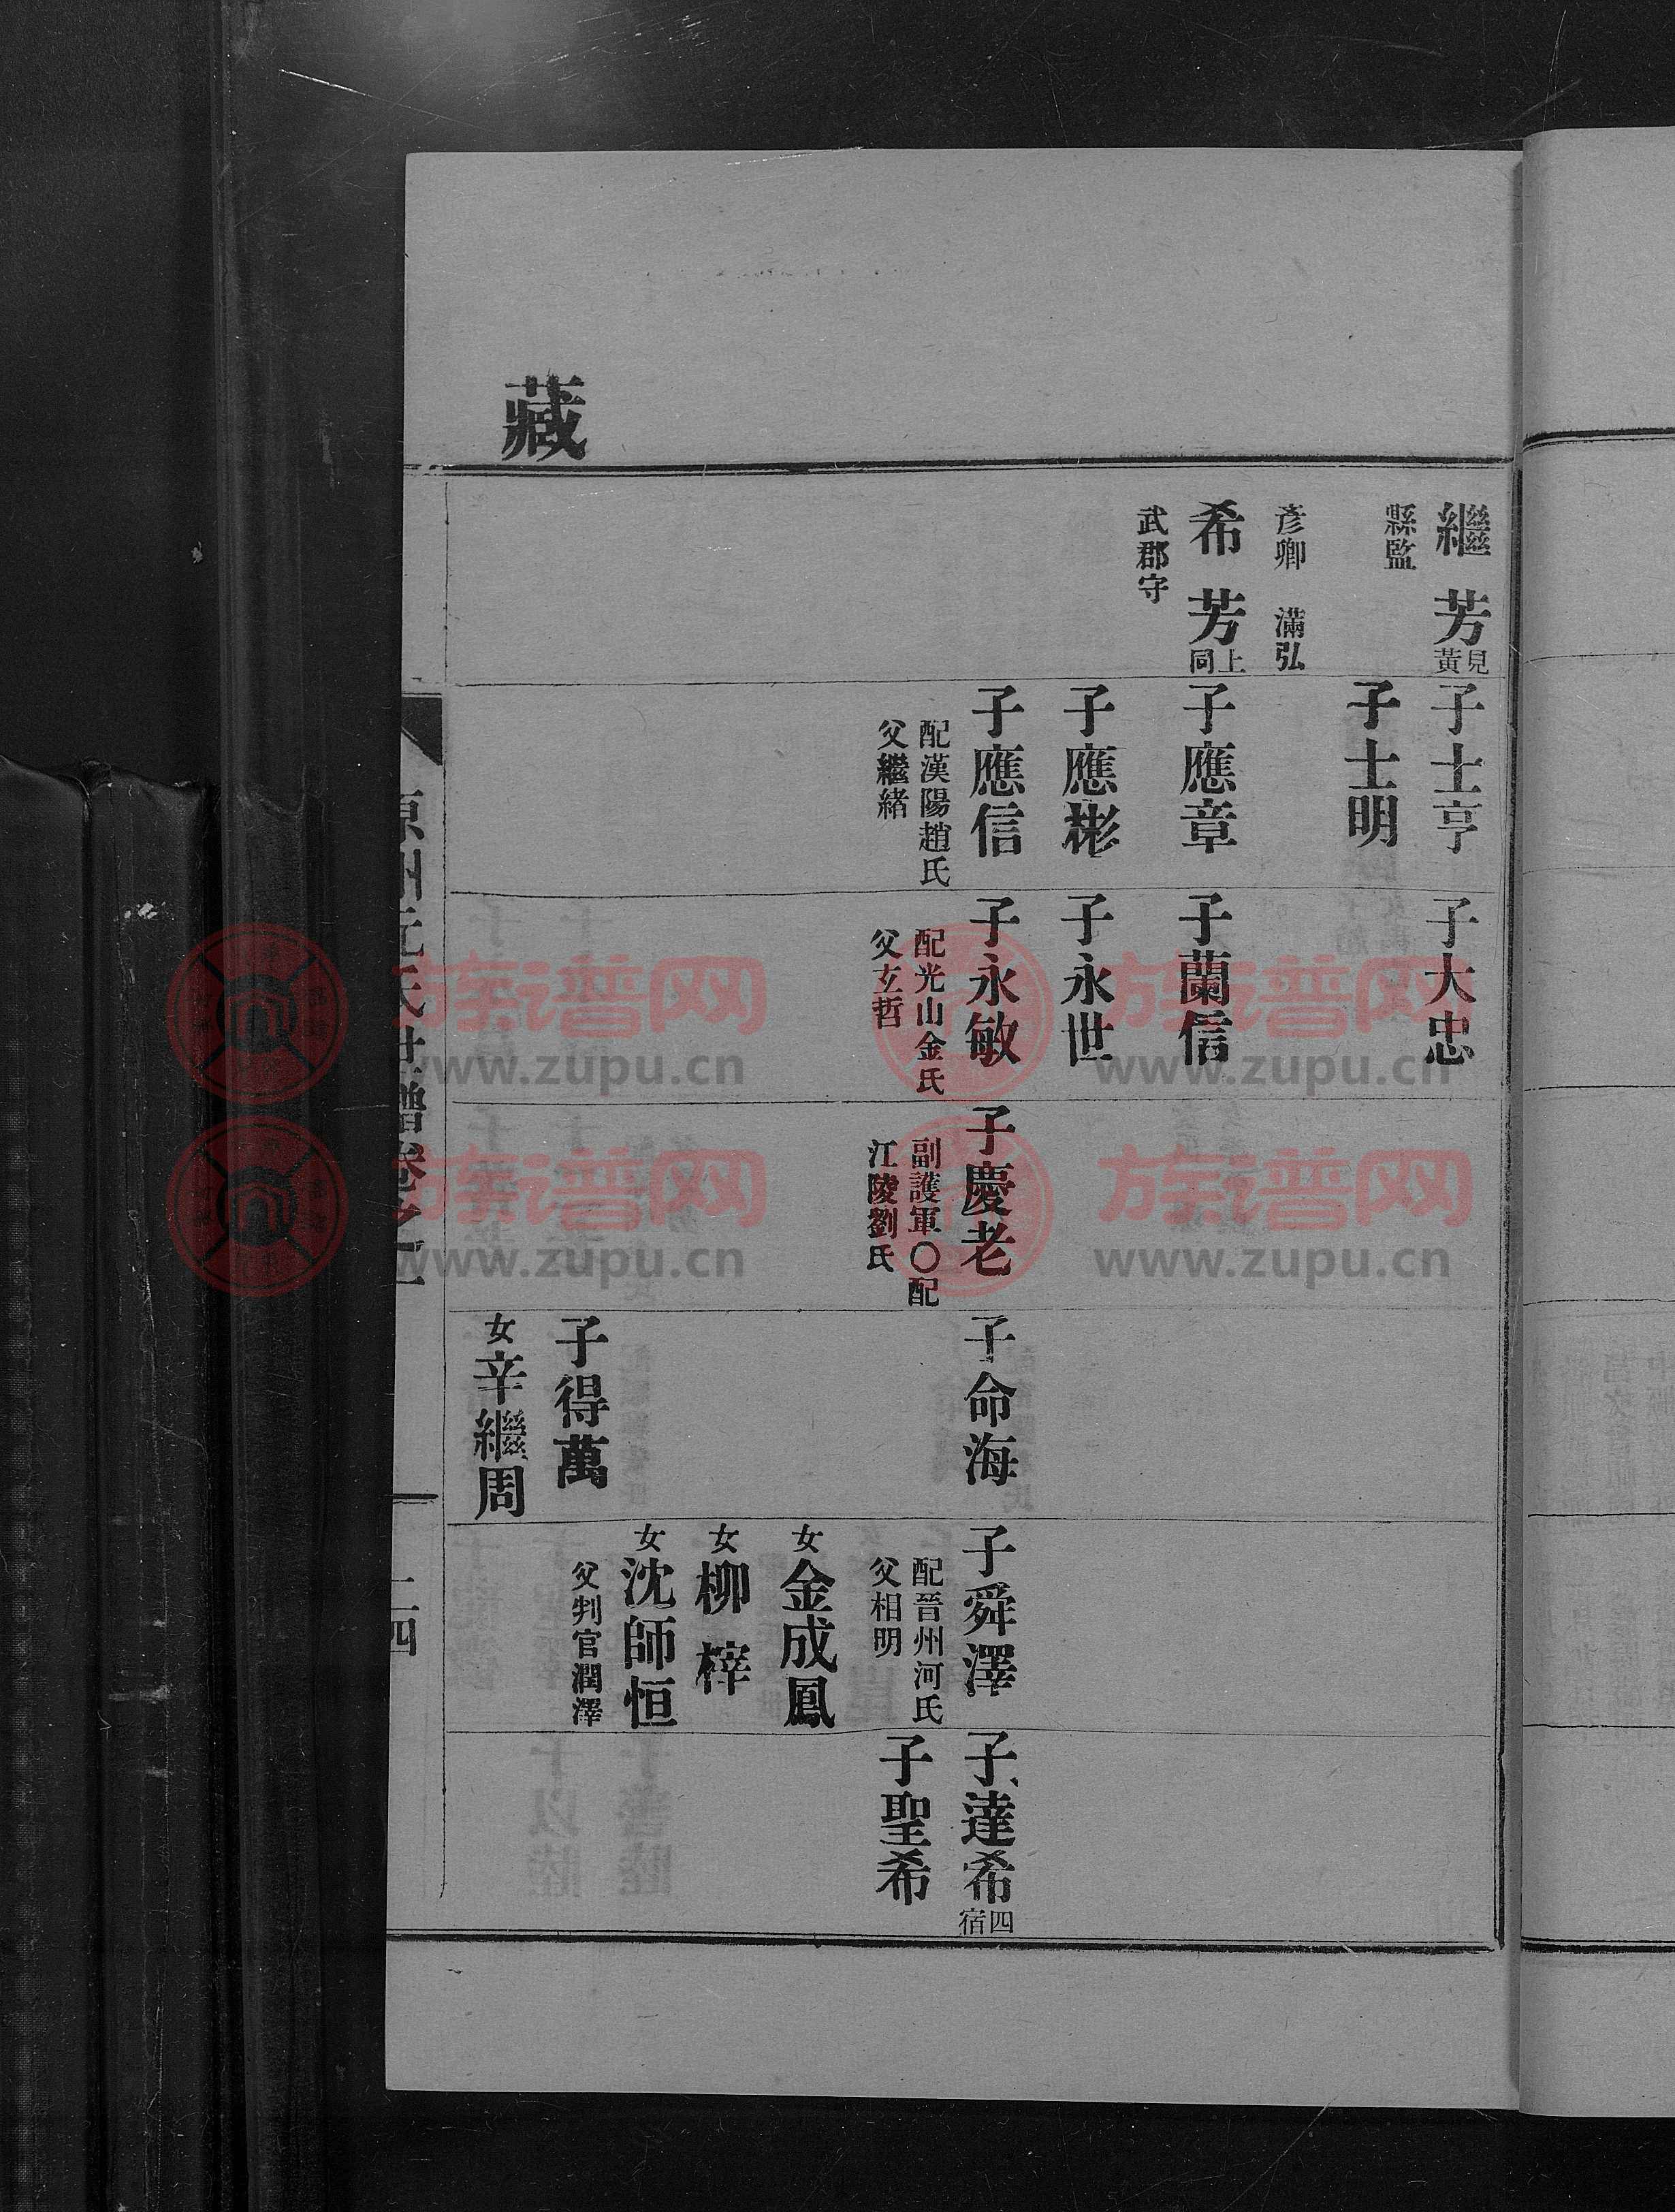 藏
繼芳見黃
縣監
彥卿 滿弘
希芳上同
武郡守
子士亨
子士明
子應章
子應彬
子應信
配漢陽趙氏
父繼緒
子大忠
子蘭信
子永世
子永敏
配光山金氏
父玄哲
子慶老
副護軍〇配
江陵劉氏
子命海
子得萬
女辛繼周
子舜澤
配晉州河氏
父相明
女金成鳳
女柳梓
女沈師恒
父判官潤澤
子達希四宿
子聖希
原州元氏世譜卷之一
二四
族谱网
www.zupu.cn
族谱网
www.zupu.cn
族谱网
www.zupu.cn
族谱网
www.zupu.cn